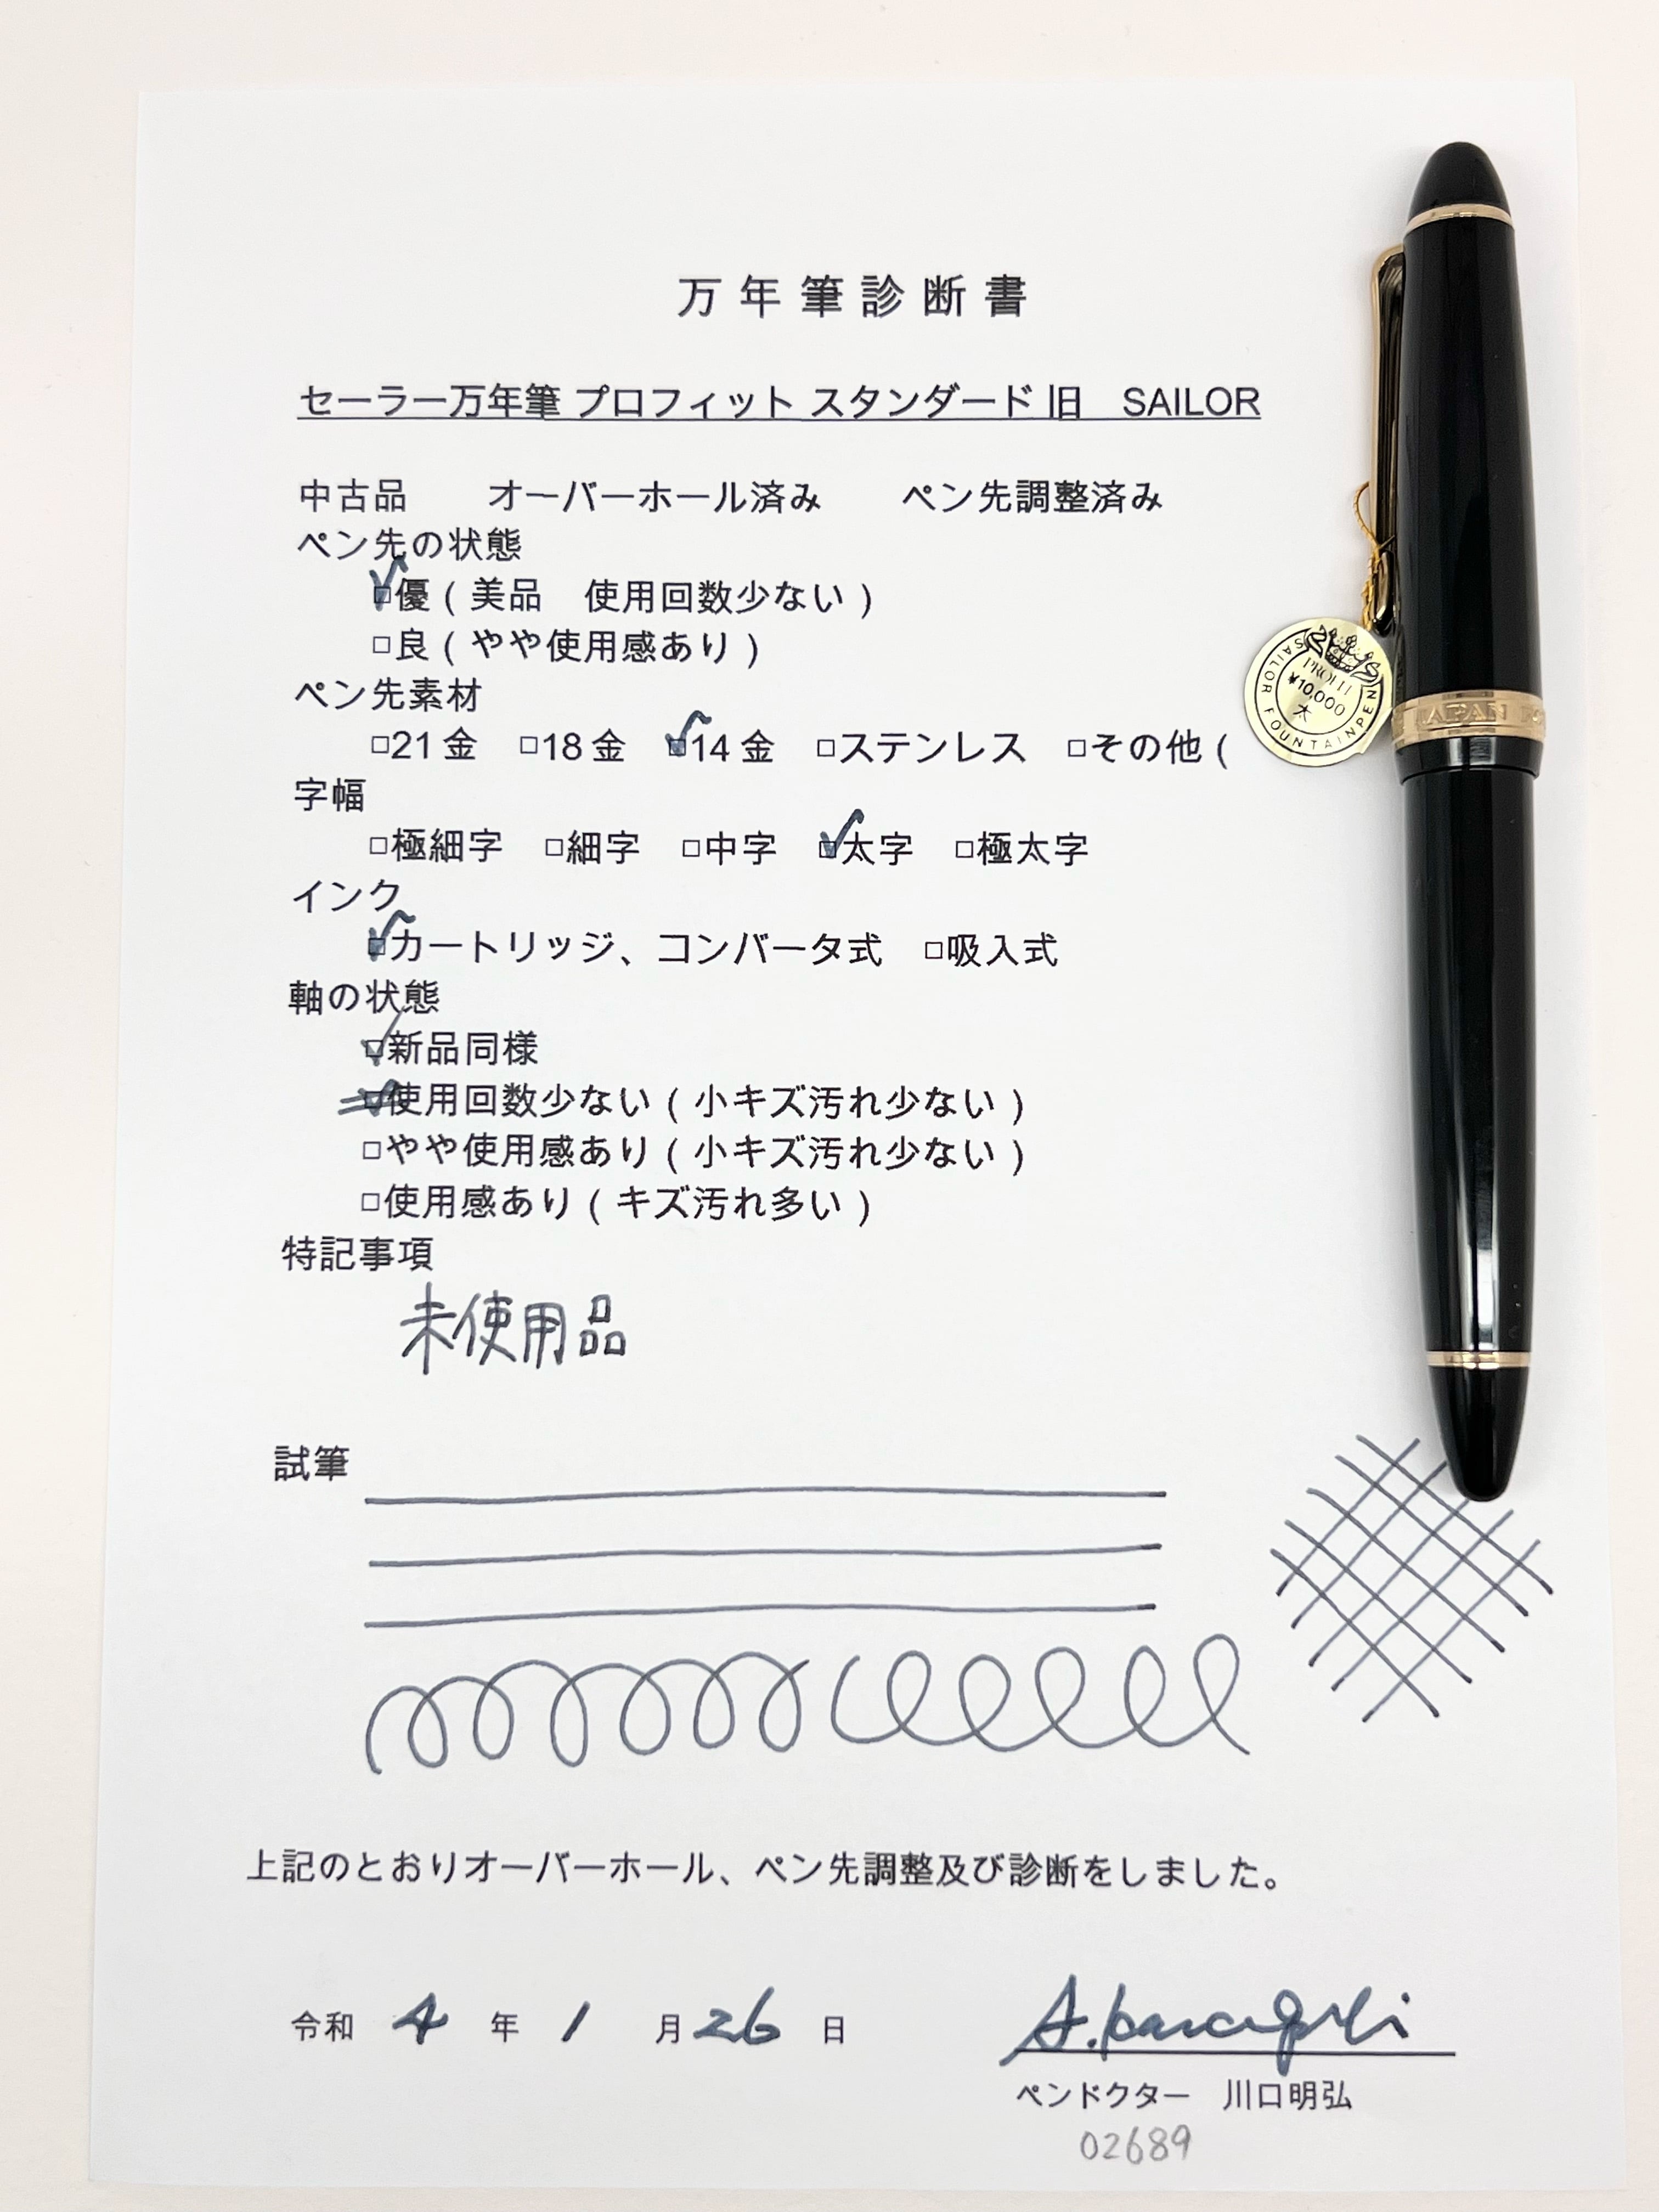 万年筆診断書
セーラー万年筆 プロフィット スタンダード 旧　SAILOR
中古品　　オーバーホール済み　　ペン先調整済み
ペン先の状態
☑優（美品　使用回数少ない）
□良（やや使用感あり）
ペン先素材
□21金　□18金　☑14金　□ステンレス　□その他（
字幅
□極細字　□細字　□中字　☑太字　□極太字
インク
☑カートリッジ、コンバータ式　□吸入式
軸の状態
☑新品同様
☑使用回数少ない（小キズ汚れ少ない）
□やや使用感あり（小キズ汚れ少ない）
□使用感あり（キズ汚れ多い）
特記事項
未使用品
試筆
上記のとおりオーバーホール、ペン先調整及び診断をしました。
令和 4 年 1 月 26 日
A.Kawaguchi
ペンドクター　川口明弘
02689
SAILOR FOUNTAIN PEN
PROFIT
¥10,000
太
JAPAN